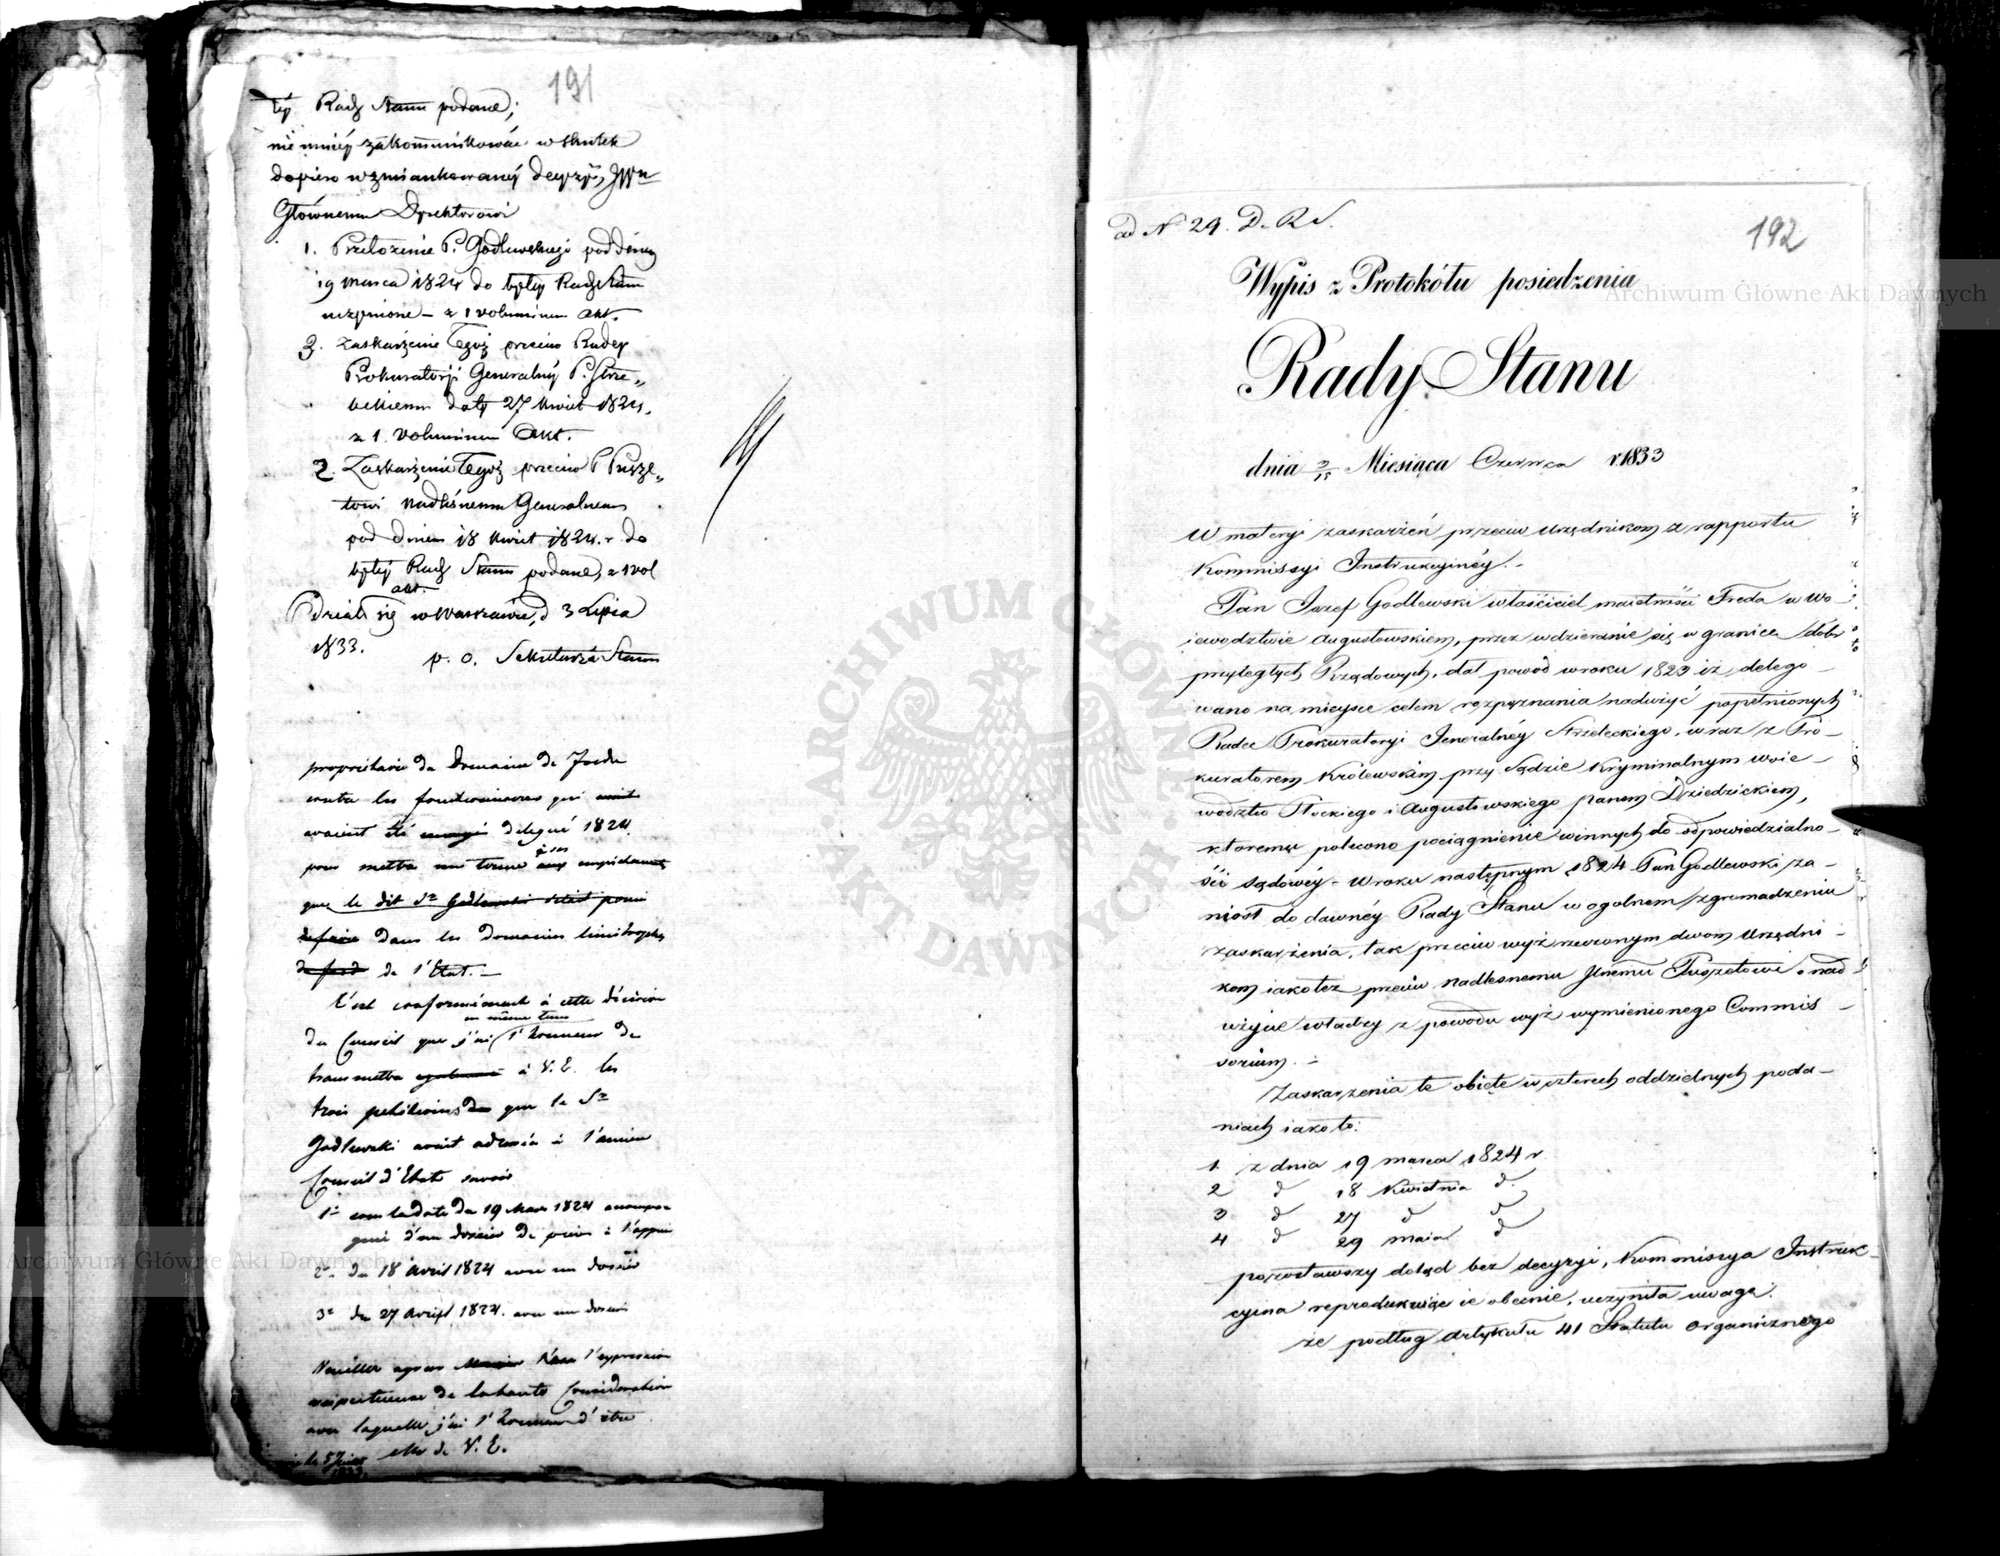 191
téj Rady Stanu podane;
nie mniéj zakomunikować w skutek
dopiero wzmiankowanéj decyzyi, JW
Głównemu Dyrektorowi
1. Przełożenie P. Godlewskiego pod dniem
19 marca 1824 do byłéj Rady Stanu
uczynione – z 1 voluminem akt.
3. Zaskarżenie Tegoż przeciw Radcy
Prokuratorji Generalnéj P. Strze„
leckiemu daty 27 kwiet 1824.
z 1. voluminem Akt.
2. Zaskarżenie Tegoż przeciw P Puszé„
towi Nadleśnemu Generalnemu
pod dniem 18 kwiet 1824. r do
byłéj Rady Stanu podane, z 1 vol
akt.
Działo się w Warszawie, d 3 Lipca
1833.
p. o. Sekretarza Stanu
propriétaire du Domaine de Freda
contre les fonctionnaires qui avait
avaient été delegué 1824
pour mettre un terme à ses aux empiétements
que le dit Sr Godlewski
dans les Domaines limitrophes
de l'Etat. —
C'est conformément à cette décision
en même tems
du Conseil que j'ai l'honneur de
transmettre également à V. E. les
trois petitions que le Sr
Godlewski avait adressé à l'ancien
Conseil d'Etat savoir
1° sous la date du 19 Mars 1824 accompa
gné d'un dossier de pièces à l'appui
2° du 18 Avril 1824 avec un dossier
3° du 27 Avril 1824. avec un dossier
Veuillez agréer l'expression
respectueuse de la haute Consideration
avec laquelle j'ai l'honneur d'être
de V. E.
ad N 24. D. R S.
192
Wypis z Protokółu posiedzenia
Rady Stanu
dnia 3/15 Miesiąca Czerwca r. 1833
W materyi zaskarżeń przeciw Urzędnikom z rapportu
Kommissyi Instrukcyinéy. –
Pan Jozef Godlewski właściciel maiętności Freda w Wo
iewodztwie Augustowskiem, przez wdzieranie się w granice dóbr
przyległych Rządowych, dał powod w roku 1823 iż delego
wano na mieysce celem rozpoznania nadużyć popełnionych
Radcę Prokuratoryi Jeneralnéy Strzeleckiego, wraz z Pro–
kuratorem Królewskim przy Sądzie Kryminalnym woie–
wodztw Płockiego i Augustowskiego panem Dziedzickiem,
ktoremu polecono pociągnienie winnych do odpowiedzialno–
ści sądowéy – W roku następnym 1824 Pan Godlewski za–
niosł do dawnéy Rady Stanu w ogolnem zgromadzeniu
zaskarżenia, tak przeciw wyż rzeczonym dwom Urzędni–
kom iako też przeciw Nadlesnemu Jlnemu Puszetowi o nad
użycie władzy z powodu wyż wymienionego Commis–
sorium. –
Zaskarżenia te obięte w czterech oddzielnych poda–
niach iako to:
1. z dnia 19 marca 1824 r
2 d 18 Kwietnia d.
3 d 27 d d
4 d 29 maia d
pozostawszy dotąd bez decyzyi, Kommissya Instruk–
cyina reprodukuiąc ie obecnie, uczyniła uwagę:
że podług artykułu 41 Statutu organicznego
Archiwum Główne Akt Dawnych
Archiwum Główne Akt Dawnych
ARCHIWUM GŁÓWNE AKT DAWNYCH